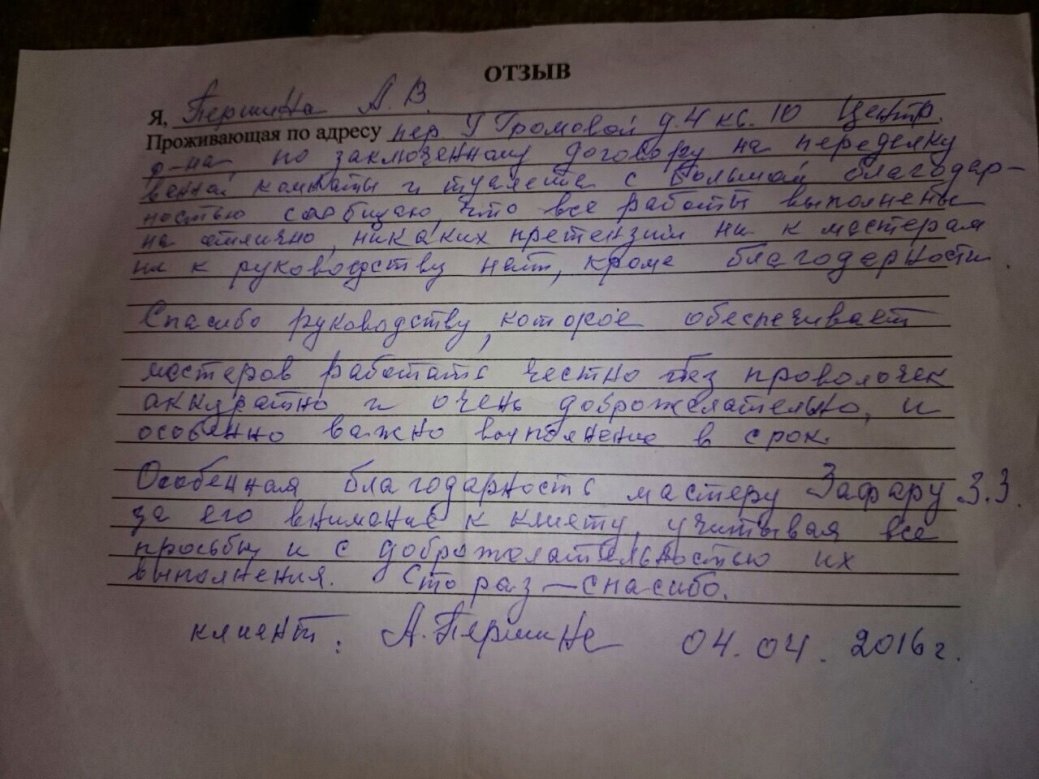 ОТЗЫВ
Я, Першина А. В.
Проживающая по адресу пер. У Громовой д. 4 кв. 10 Центр.
р-на, по заключенному договору на переделку
ванной комнаты и туалета с большой благодар-
ностью сообщаю, что все работы выполнены
на отлично, никаких претензий ни к мастерам
ни к руководству нет, кроме благодарности.
Спасибо руководству, которое обеспечивает
мастеров работать честно без проволочек
аккуратно и очень доброжелательно, и
особенно важно выполнение в срок.
Особенная благодарность мастеру Зафару З.З.
за его внимание к клиету, учитывая все
просьбы и с доброжелательностью их
выполнения. Сто раз — спасибо.
клиент: А. Першина 04.04.2016 г.